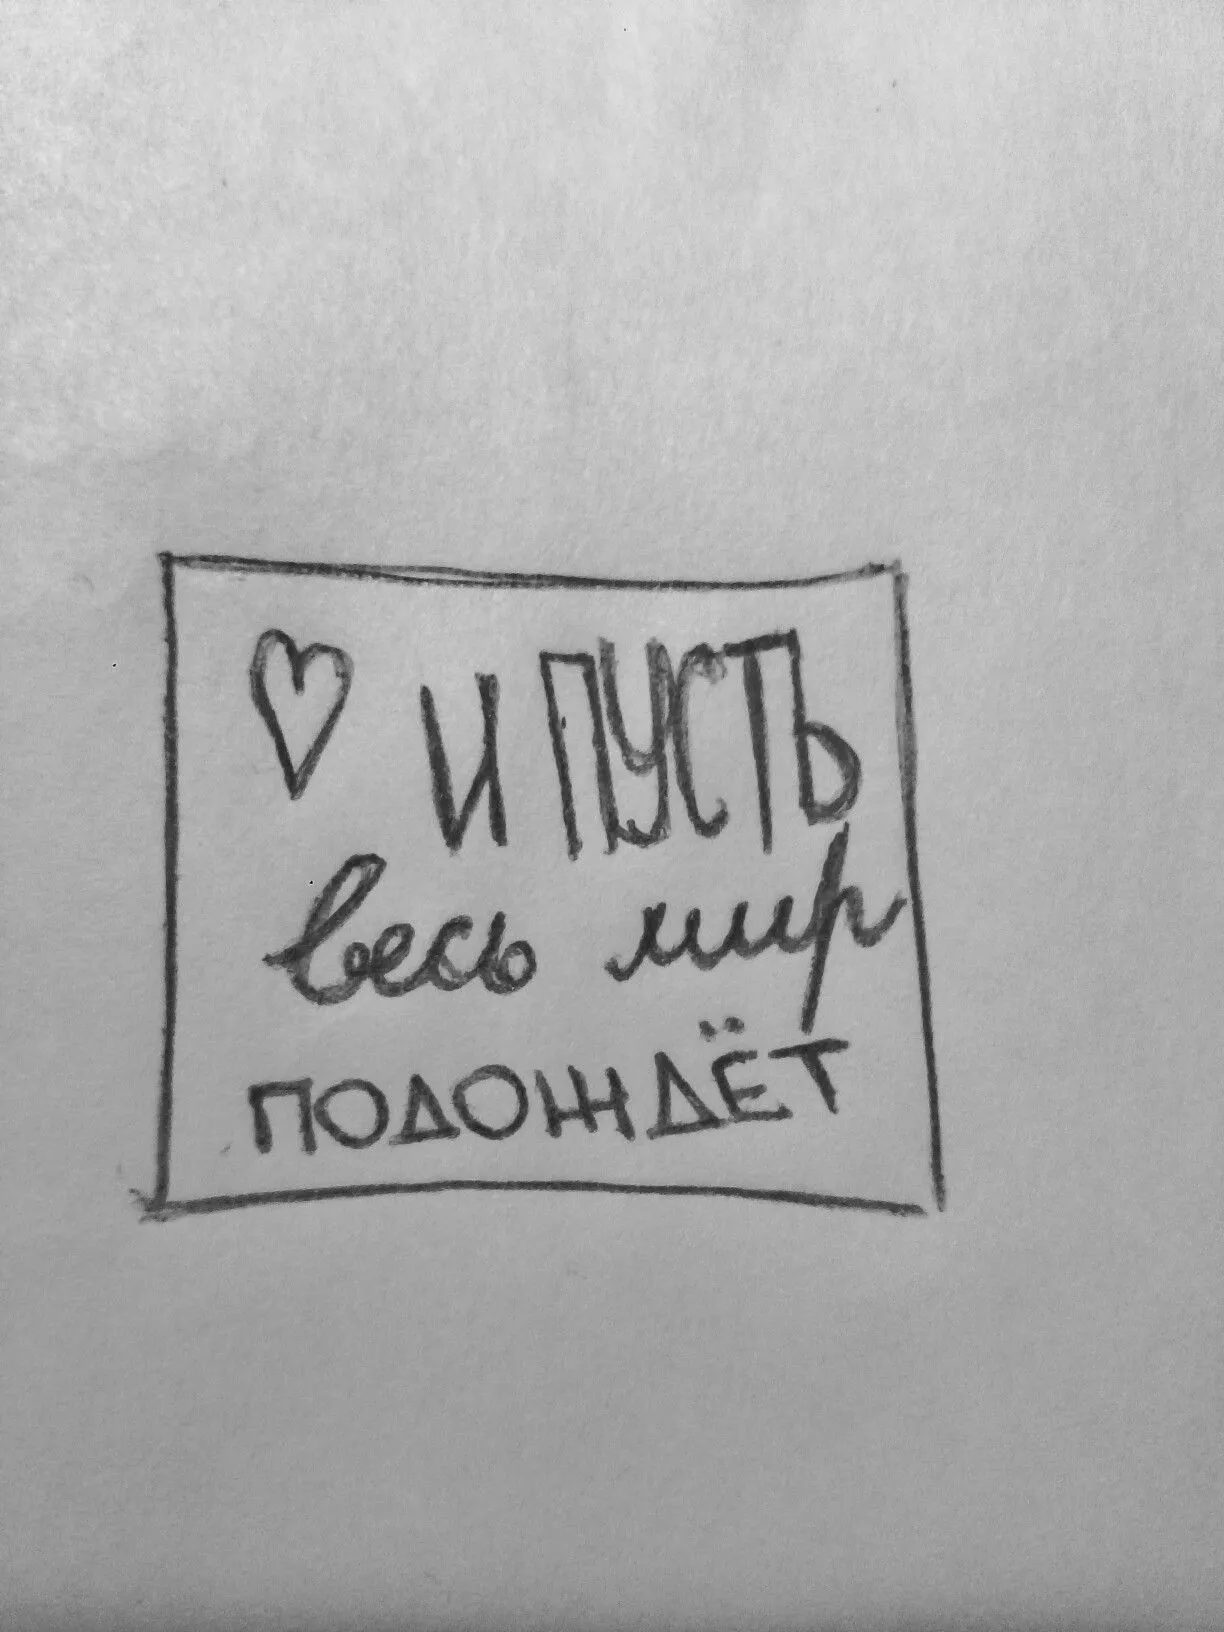 И ПУСТЬ
весь мир
ПОДОЖДЁТ